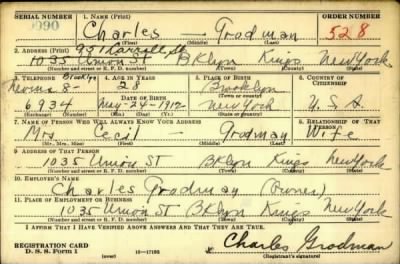 SERIAL NUMBER 1. NAME (Print) ORDER NUMBER
Charles — Grodman 528
(First) (Middle) (Last)
2. ADDRESS (Print) 937 Carroll St
1035 Union St Bklyn Kings New York
(Number and street or R. F. D. number) (Town) (County) (State)
3. TELEPHONE Brooklyn 4. AGE IN YEARS 5. PLACE OF BIRTH 6. COUNTRY OF CITIZENSHIP
Nevins 8- 28 Brooklyn
DATE OF BIRTH (Town or county)
6934 May-24-1912 New York U.S.A
(Exchange) (Number) (Mo.) (Day) (Yr.) (State or country)
7. NAME OF PERSON WHO WILL ALWAYS KNOW YOUR ADDRESS 8. RELATIONSHIP OF THAT PERSON
Mrs. Cecil — Grodman Wife
(Mr., Mrs., Miss) (First) (Middle) (Last)
9. ADDRESS OF THAT PERSON
1035 Union St Bklyn Kings New York
(Number and street or R. F. D. number) (Town) (County) (State)
10. EMPLOYER'S NAME
Charles Grodman (Owner)
11. PLACE OF EMPLOYMENT OR BUSINESS
1035 Union St Bklyn Kings New York
(Number and street or R. F. D. number) (Town) (County) (State)
I AFFIRM THAT I HAVE VERIFIED ABOVE ANSWERS AND THAT THEY ARE TRUE.
REGISTRATION CARD Charles Grodman
D. S. S. Form 1 (over) (Registrant's signature)